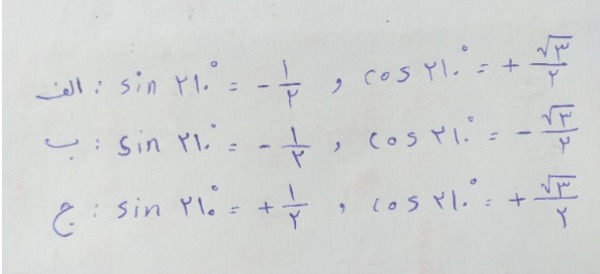 الف: sin ۲۱۰° = -۱/۲ , cos ۲۱۰° = +√۳/۲
ب: sin ۲۱۰° = -۱/۲ , cos ۲۱۰° = -√۳/۲
ج: sin ۲۱۰° = +۱/۲ , cos ۲۱۰° = +√۳/۲